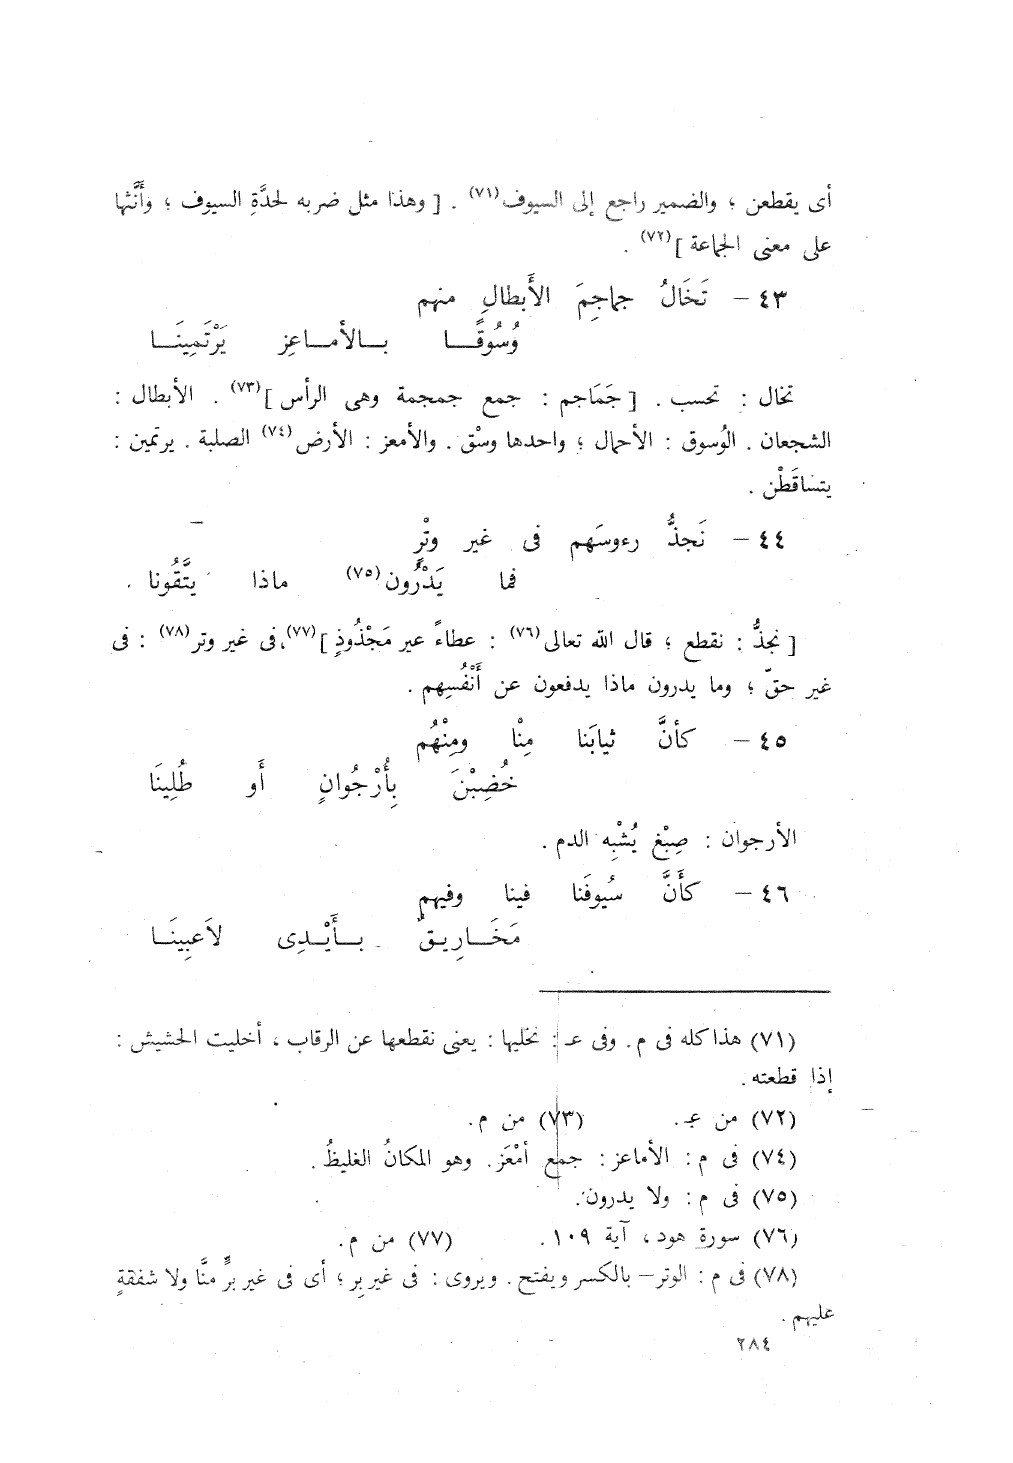 أى يقطعن ؛ والضمير راجع إلى السيوف(٧١) . [ وهذا مثل ضربه لحدَّةِ السيوف ؛ وأَنَّثها
على معنى الجماعة ](٧٢) .
٤٣ – تَخَالُ جماجِمَ الأَبطالِ منهم
وُسُوقًا بالأماعِز يَرْتَمِينَا
تخال : تحسب . [ جَمَاجم : جمع جمجمة وهى الرأس ](٧٣) . الأبطال :
الشجعان . الوُسوق : الأحمال ؛ واحدها وسْق . والأمعز : الأرض(٧٤) الصلبة . يرتمين :
يتساقَطْن .
٤٤ – نَجذُّ رءوسَهم فى غير وتْرٍ
فما يَدْرُون(٧٥) ماذا يتَّقُونا .
[ نجذُّ : نقطع ؛ قال الله تعالى(٧٦) : عطاءً عير مَجْذُوذٍ ](٧٧)، فى غير وتر(٧٨) : فى
غير حقّ ؛ وما يدرون ماذا يدفعون عن أَنْفُسِهم .
٤٥ – كأنَّ ثيابَنا مِنْا ومِنْهُم
خُضِبْنَ بِأُرْجُوانٍ أَو طُلِينَا
الأرجوان : صِبْغ يُشْبِه الدم .
٤٦ – كأَنَّ سُيوفَنا فينا وفيهم
مَخَارِيقٌ بأَيْدِى لاَعِبِينَا
(٧١) هذا كله فى م. وفى عـ : نخليها : يعنى نقطعها عن الرقاب ، أخليت الحشيش :
إذا قطعته .
(٧٢) من عـ. (٧٣) من م.
(٧٤) فى م : الأماعز : جمع أمْعَز. وهو المكانُ الغليظُ .
(٧٥) فى م : ولا يدرون.
(٧٦) سورة هود، آية ١٠٩ . (٧٧) من م.
(٧٨) فى م : الوتر – بالكسر ويفتح . ويروى : فى غير بِر ؛ أى فى غير برٍّ منَّا ولا شفقةٍ
عليهم .
٢٨٤